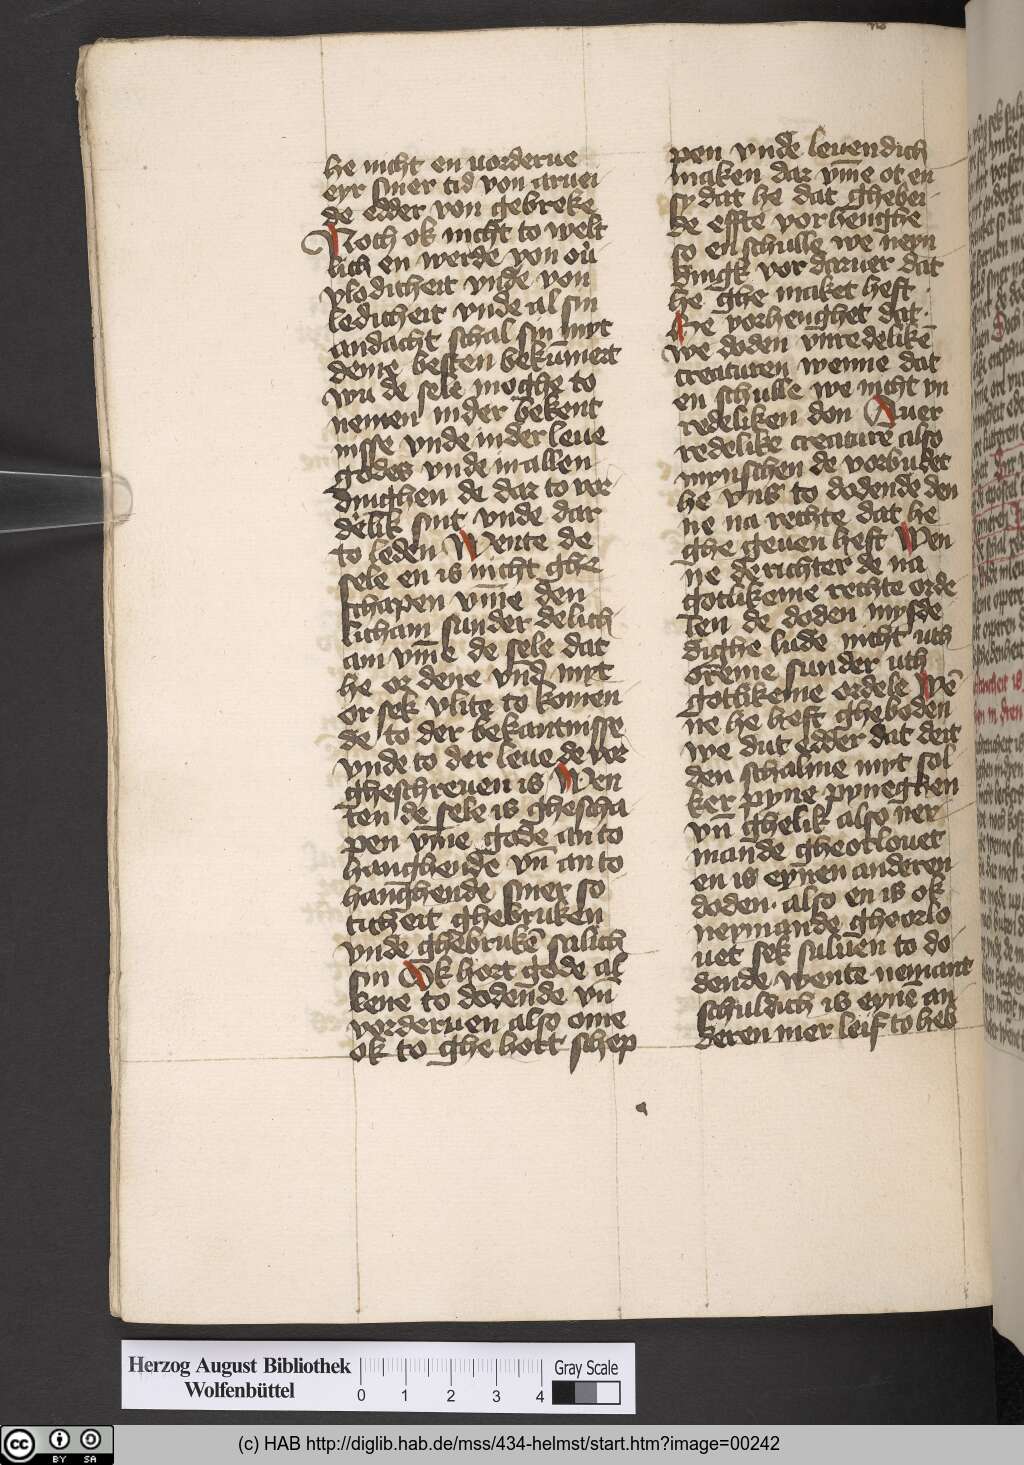 he nicht en uorderue
eyr siner tid von aruei
de edder von gebreke
Noch ok nicht to welt
lich en werde von ou̇
vlodicheit vnde von
ledicheit vnde al sin
andacht schal sin myt
deme besten bekūmert
wu de sele moghe to
nemen in der bekent
nisse vnde in der leue
godes vnde in allen
dinghen de dar to vor
delik sint vnde dar
to leden Wente de
sele en is nicht ghe
schapen vm̄e den
licham sunder de lich
am vm̄e de sele dat
he or dene vnd myt
or sek vlite to komen
de to der bekantnisse
vnde to der leue de vor
gheschreuen is Wen
ten de sele is ghescha
pen vm̄e gode an to
hanghende vn̄ an to
hanghende siner so
ticheit ghebruken
vnde ghebrukē salich
sin Ok hort gode al
lene to dodende vn̄
vorderuen also ome
ok to ghe hort schep
pen vnde leuendich
maken dar vm̄e ot en
sy dat he dat ghebei
de effte vorhenghe
so en schulle we neyn
dingk vor daruer dat
he ghe maket heft
He vorhenghet dat
we doden vnredelikē
creaturen wenne dat
en schulle we nicht vn
redeliken don Auer
redelike creature also
mynschen de vorbudet
he vns to dodende den
ne na rechte dat he
ghe geuen heft Wen
ne de richter de na
gotlikeme rechte orde
len de doden mysde
dighe lude nicht uth
oreme sunder uth
gotlikeme ordele Wē
ne he heft gheboden
we dut edder dat deit
den schalme myt sol
ker pyne pyneghen
vn̄ ghelik also ner
mande gheotlouet
en is eynen anderen
doden· also en is ok
neymande gheorlo
uet sek suluen to do
dende wente nemant
schuldich is eynē an
deren mer leif to heb
Herzog August Bibliothek
Wolfenbüttel
0 1 2 3 4
Gray Scale
(c) HAB http://diglib.hab.de/mss/434-helmst/start.htm?image=00242
cc BY SA